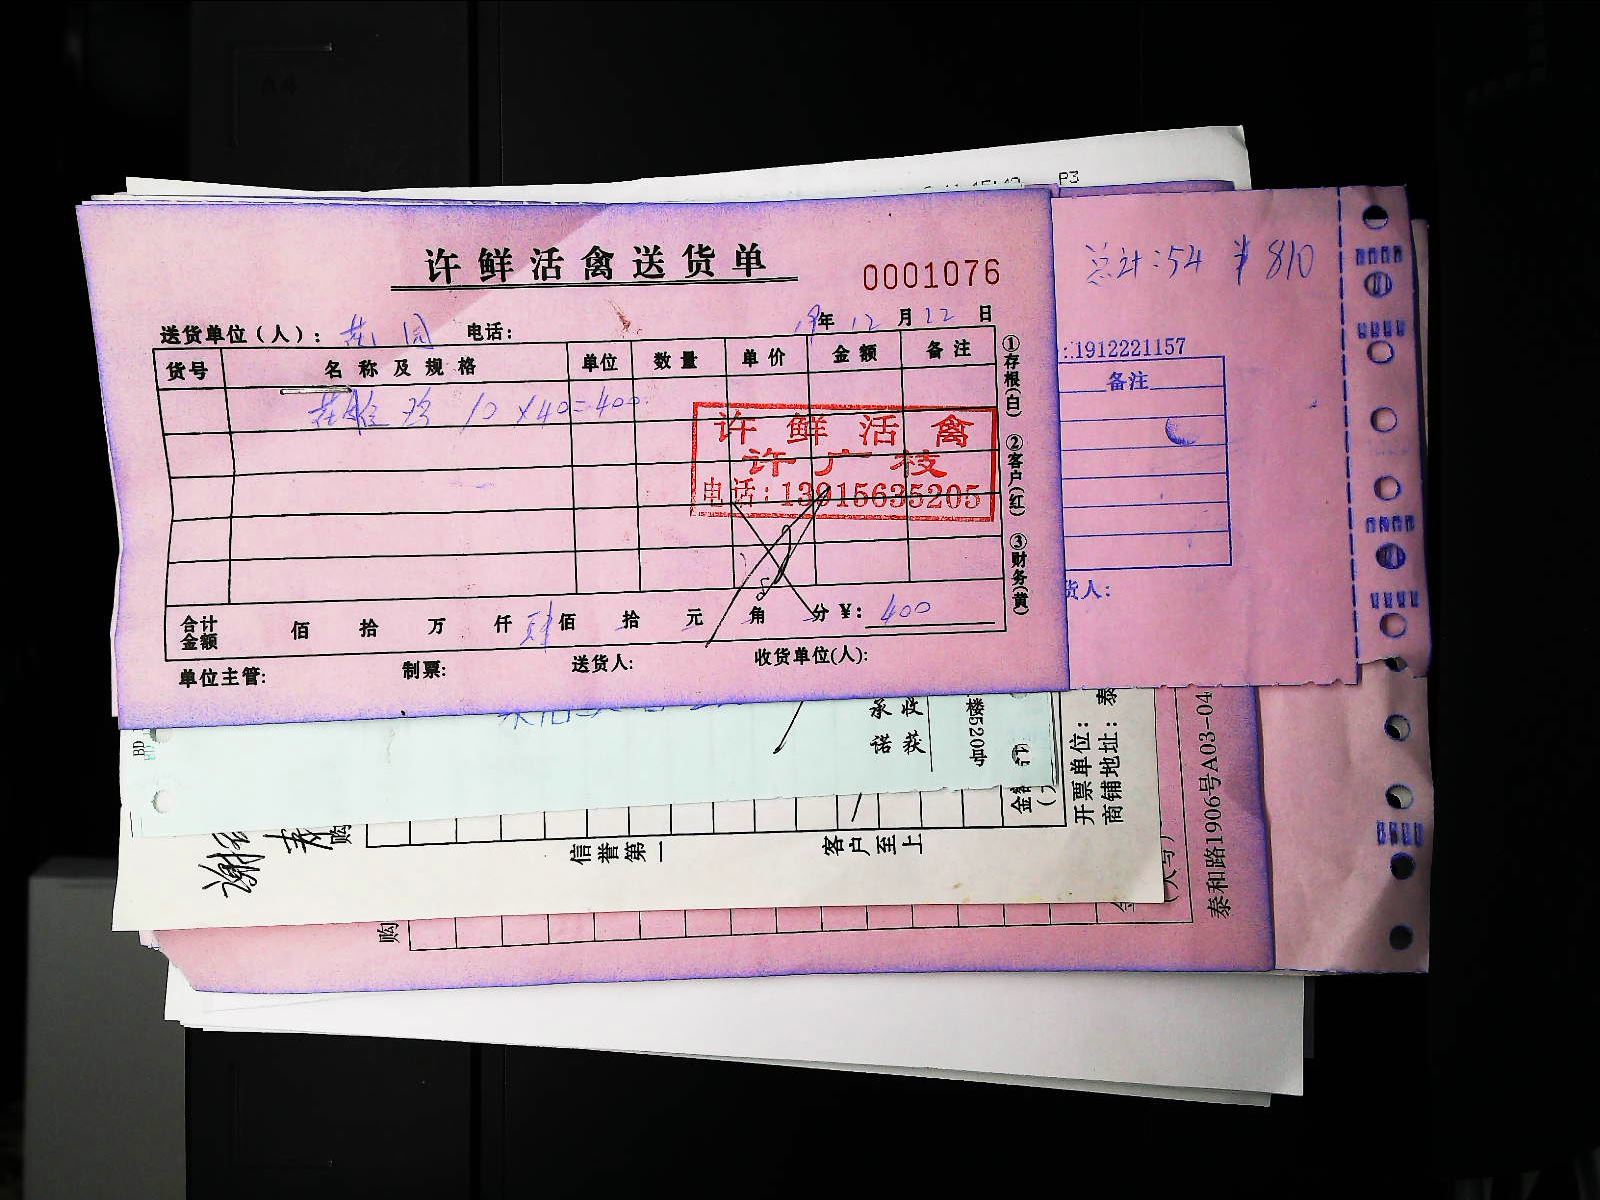 P3
许鲜活禽送货单
0001076
送货单位(人): 花园 电话:
19年 12月 22日
货号 名称及规格 单位 数量 单价 金额 备注
10×40=400
许鲜活禽
许广枝
电话:13915635205
合计金额 佰 拾 万 仟 肆佰 拾 元 角 分 ¥: 400
单位主管: 制票: 送货人: 收货单位(人):
①存根(白) ②客户(红) ③财务(黄)
总计:54 ¥810
:1912221157
备注
货人:
承诺
收获
楼520号
BD
开票单位:
商铺地址:泰
购
信誉第一
客户至上
泰和路1906号A03-04
购